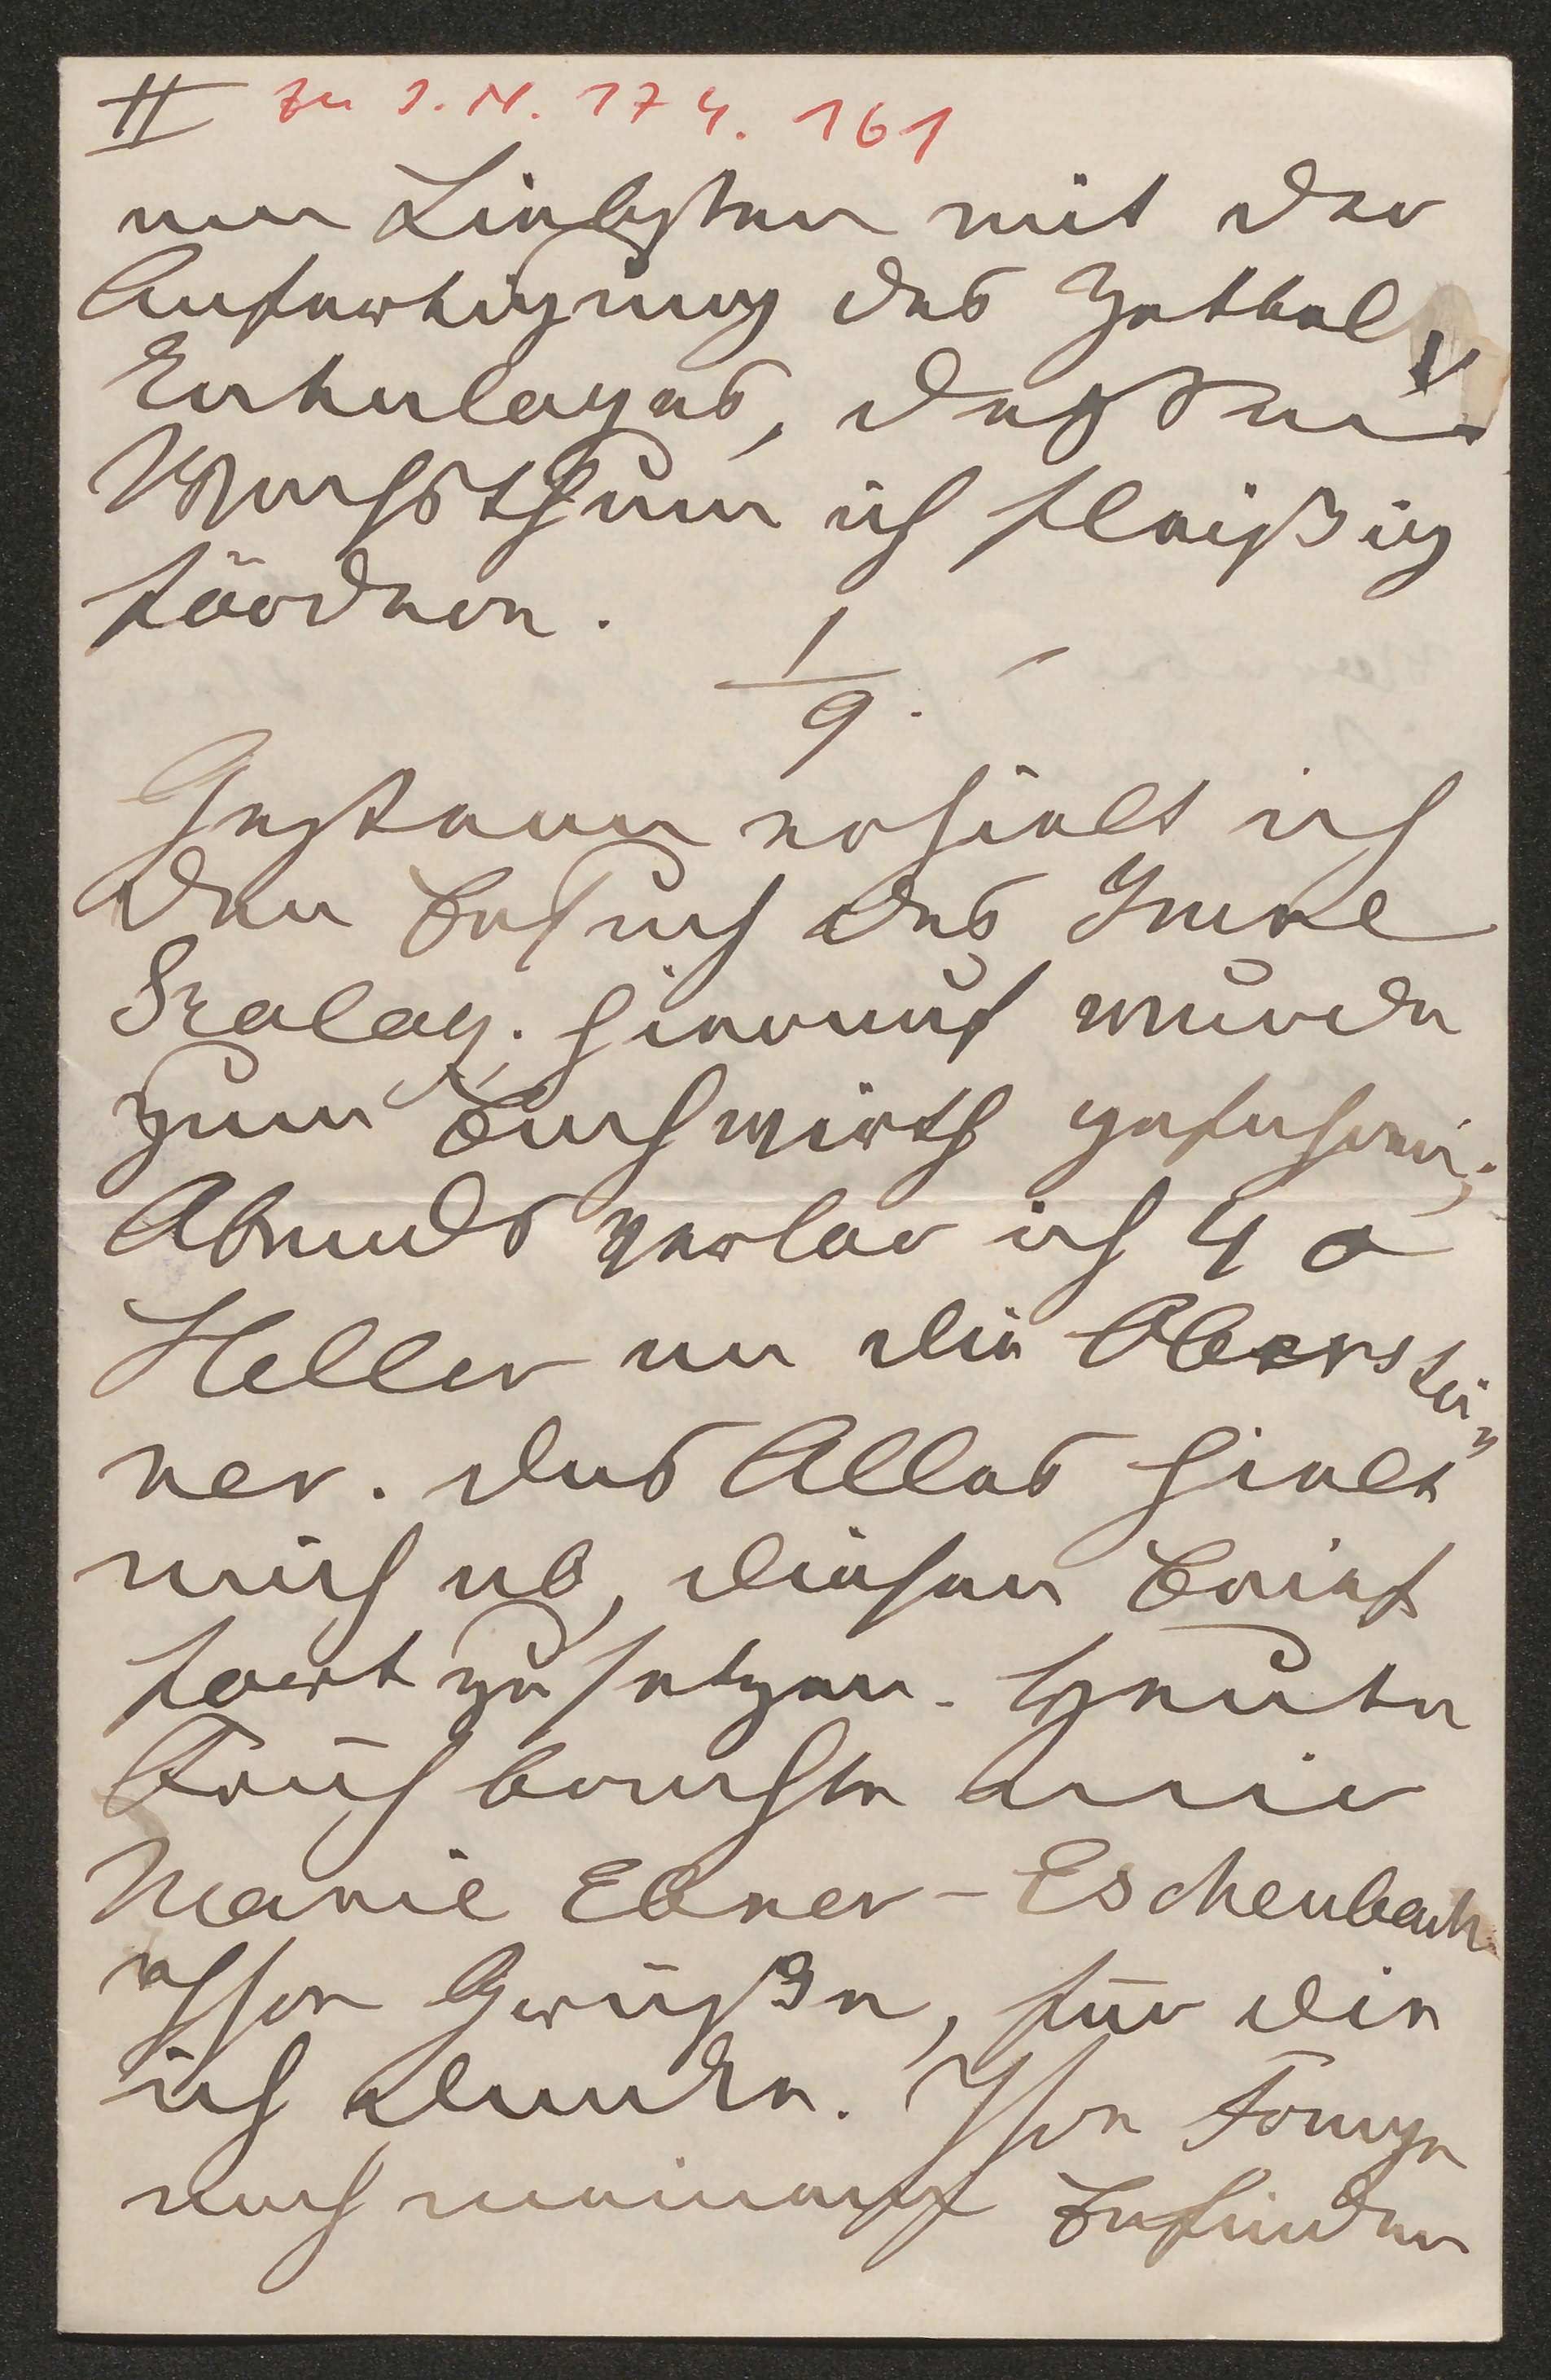 II zu I. N. 174. 161
am Liebsten mit der
Anfertigung des Zettel-
Katalogs, dessen
Wachsthum ich fleißig
fördere.
1/9. –
Gestern erhielt ich
den Besuch des Grafen
Szalay. Hierauf wurde
zum Buchwirth gefahren;
Abends verlor ich 40
Heller an die Oberstei-
ner. Das Alles hielt
mich ab, diesen Brief
fortzusetzen. Heute
Früh brachte mir
Marie Ebner-Eschenbach
Ihre Grüße, für die
ich danke. Ihre Frage
nach meinem Befinden